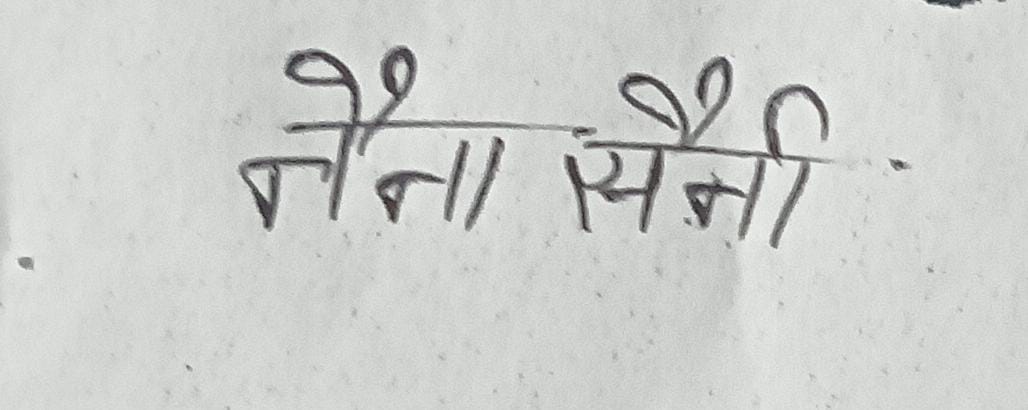 नैना सैनी